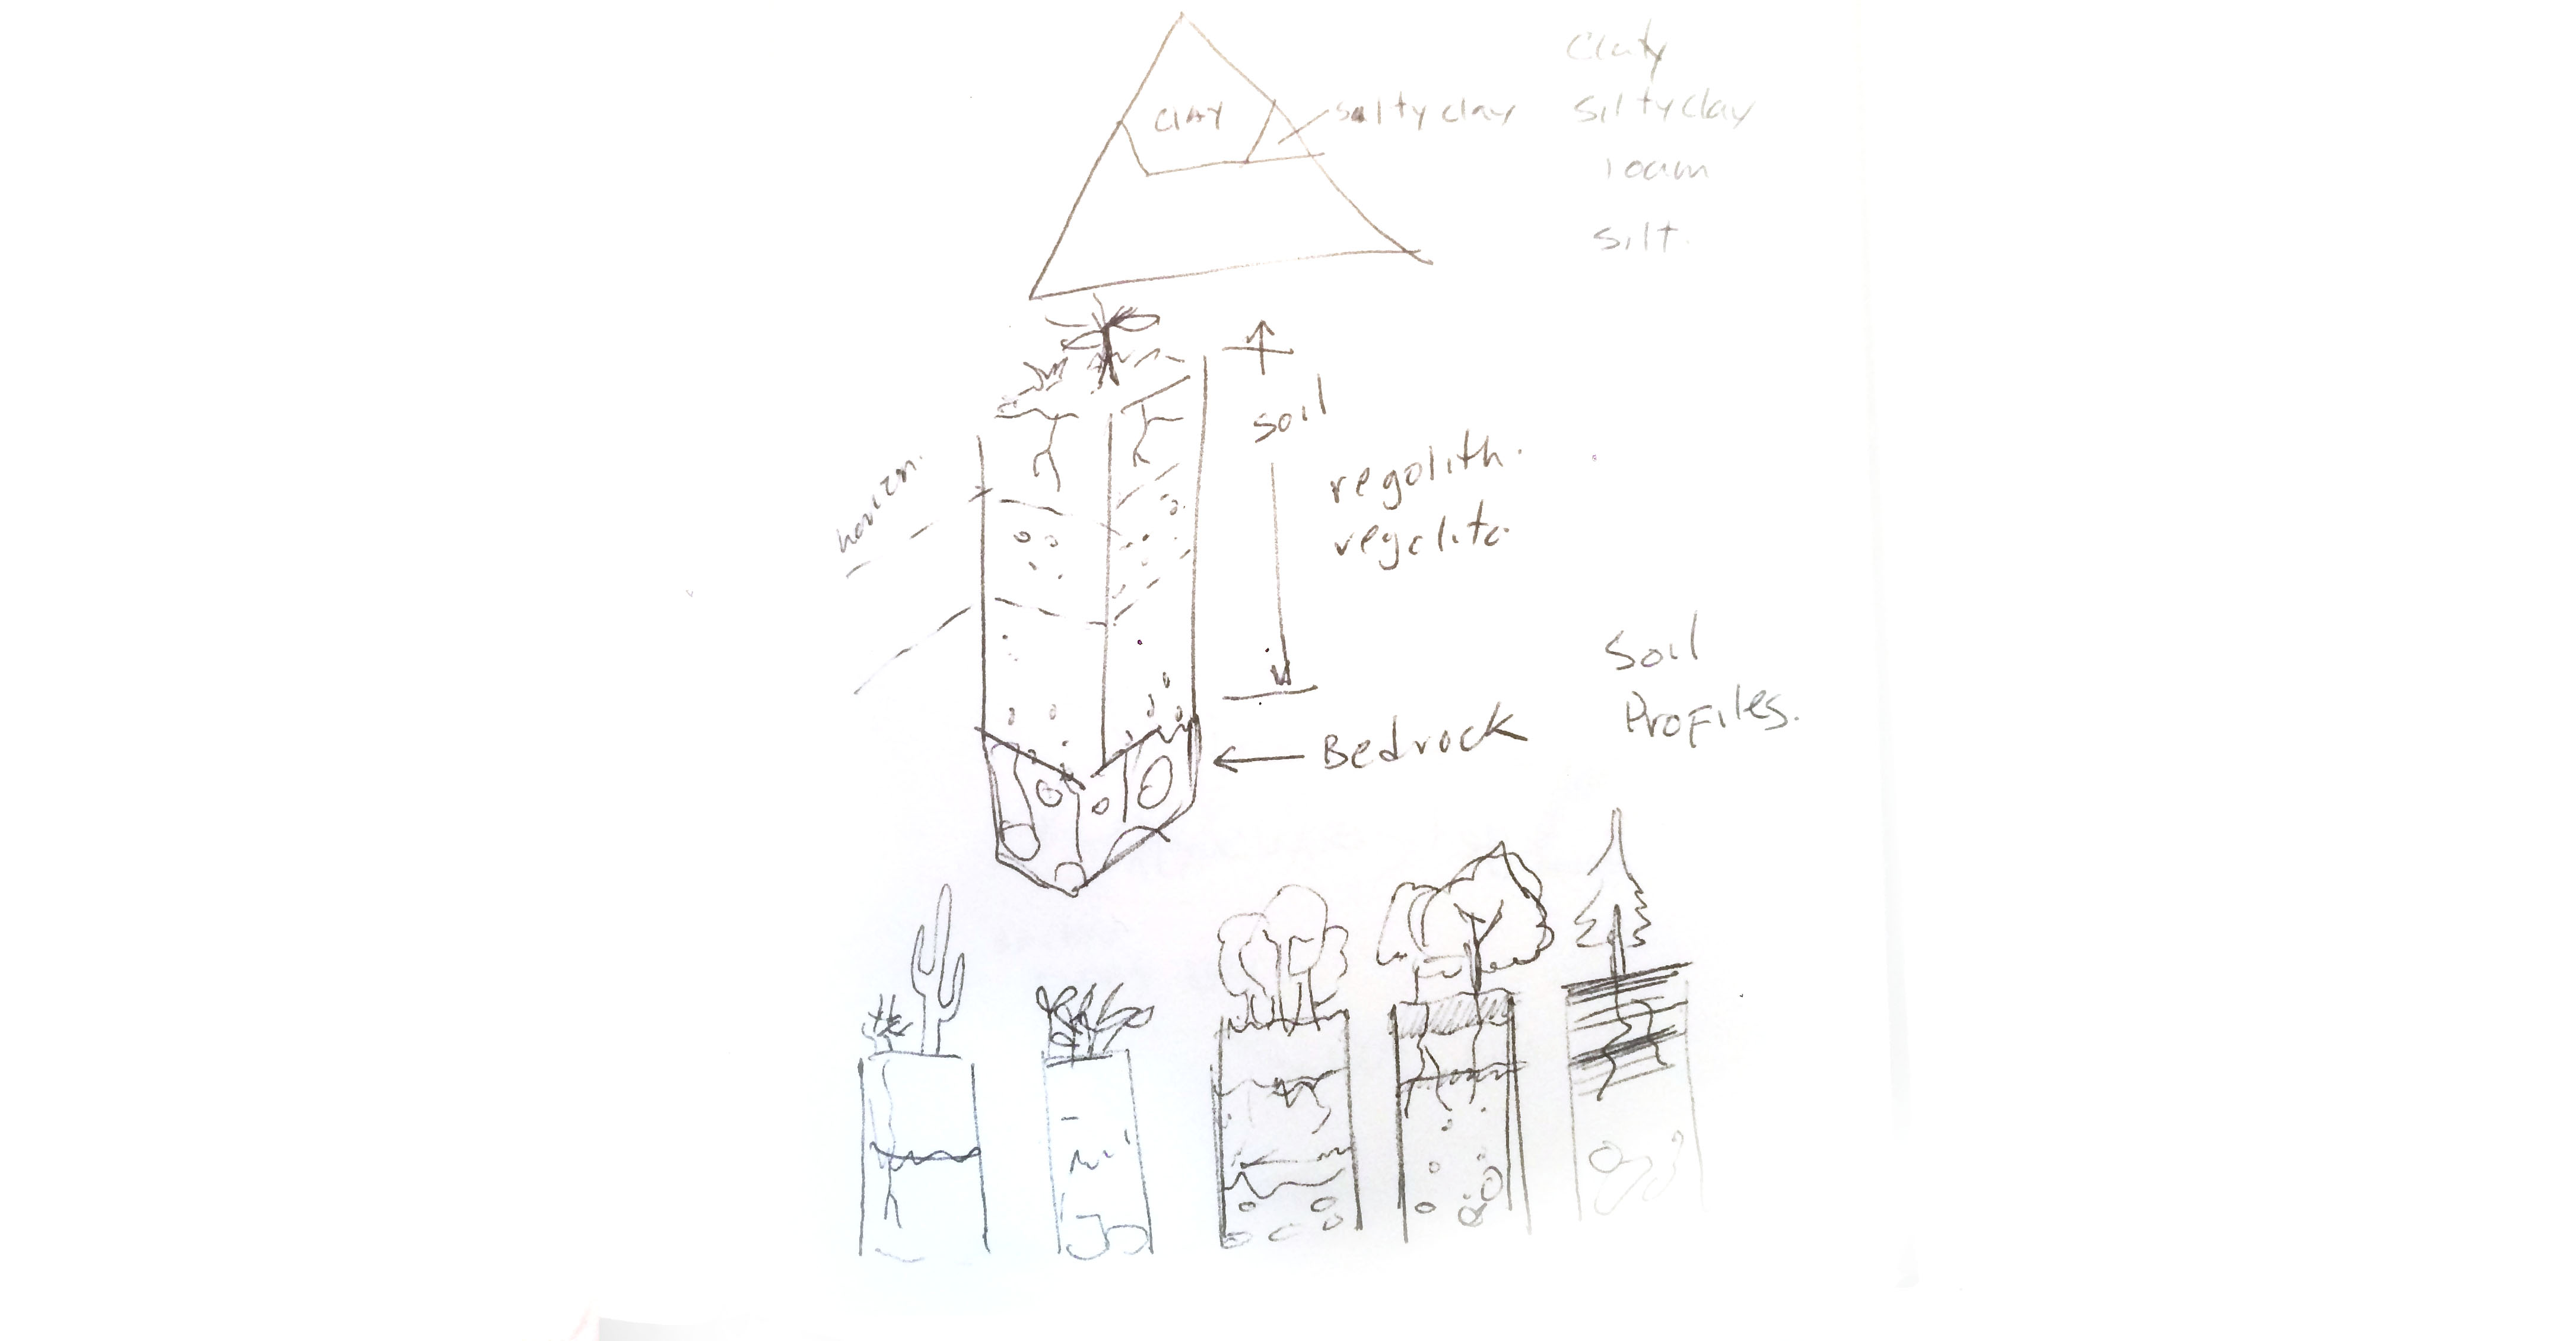 CLAY
saltyclay
Claty
Siltyclay
loam
silt.
soil
horizon.
regolith.
regolito.
Bedrock
Soil
Profiles.